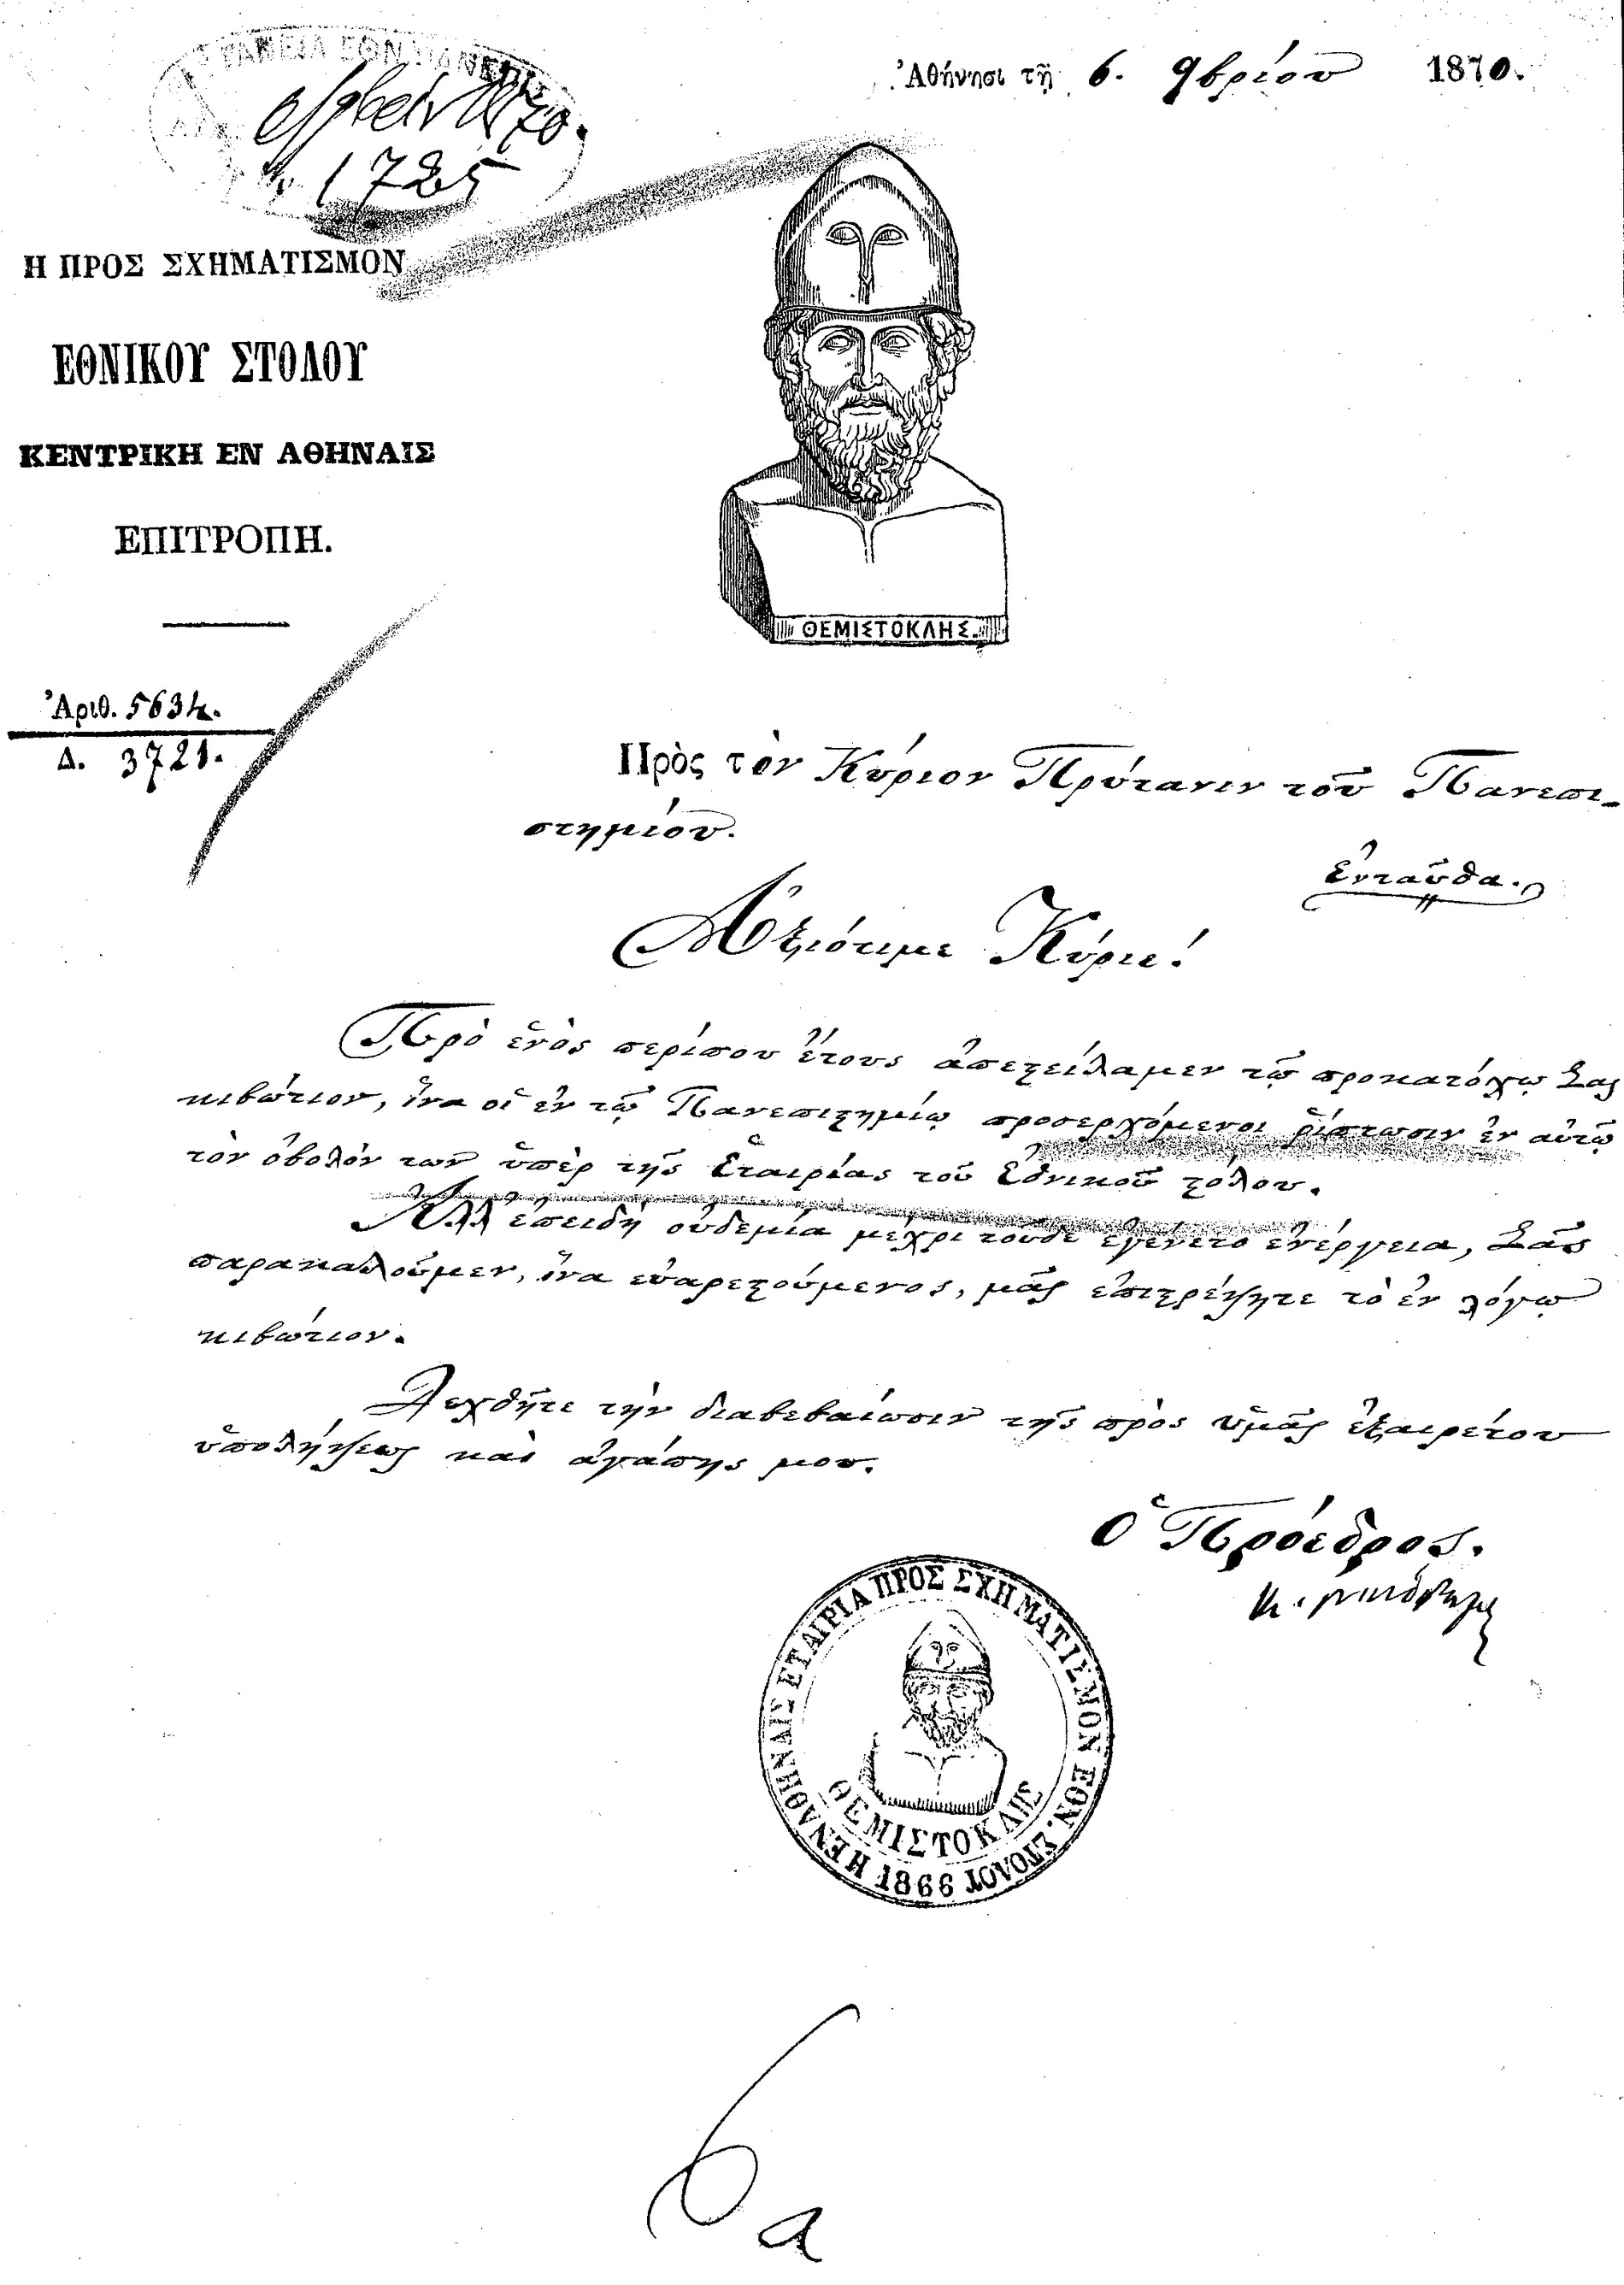 Ἀθήνησι τῇ 6. 9βρίου 1870.
1725
Η ΠΡΟΣ ΣΧΗΜΑΤΙΣΜΟΝ
ΕΘΝΙΚΟΥ ΣΤΟΛΟΥ
ΚΕΝΤΡΙΚΗ ΕΝ ΑΘΗΝΑΙΣ
ΕΠΙΤΡΟΠΗ.
ΘΕΜΙΣΤΟΚΛΗΣ.
Ἀριθ. 5634.
Δ. 3721.
Πρὸς τὸν Κύριον Πρύτανιν τοῦ Πανεπι-
στημίου.
Ἐνταῦθα.
Ἀξιότιμε Κύριε!
Πρὸ ἑνὸς περίπου ἔτους ἀπεστείλαμεν τῷ προκατόχῳ Σας
κιβώτιον, ἵνα οἱ ἐν τῷ Πανεπιστημίῳ προσερχόμενοι ῥίπτωσιν ἐν αὐτῷ
τὸν ὀβολόν των ὑπὲρ τῆς Ἑταιρίας τοῦ Ἐθνικοῦ στόλου.
Ἀλλ' ἐπειδὴ οὐδεμία μέχρι τοῦδε ἐγένετο ἐνέργεια, Σᾶς
παρακαλοῦμεν, ἵνα εὐαρεστούμενος, μᾶς ἐπιστρέψητε τὸ ἐν λόγῳ
κιβώτιον.
Δεχθῆτε τὴν διαβεβαίωσιν τῆς πρὸς ὑμᾶς ἐξαιρέτου
ὑπολήψεως καὶ ἀγάπης μου.
Ὁ Πρόεδρος.
Η ΕΝ ΑΘΗΝΑΙΣ ΕΤΑΙΡΙΑ ΠΡΟΣ ΣΧΗΜΑΤΙΣΜΟΝ ΕΘΝ. ΣΤΟΛΟΥ 1866
ΘΕΜΙΣΤΟΚΛΗΣ
6α